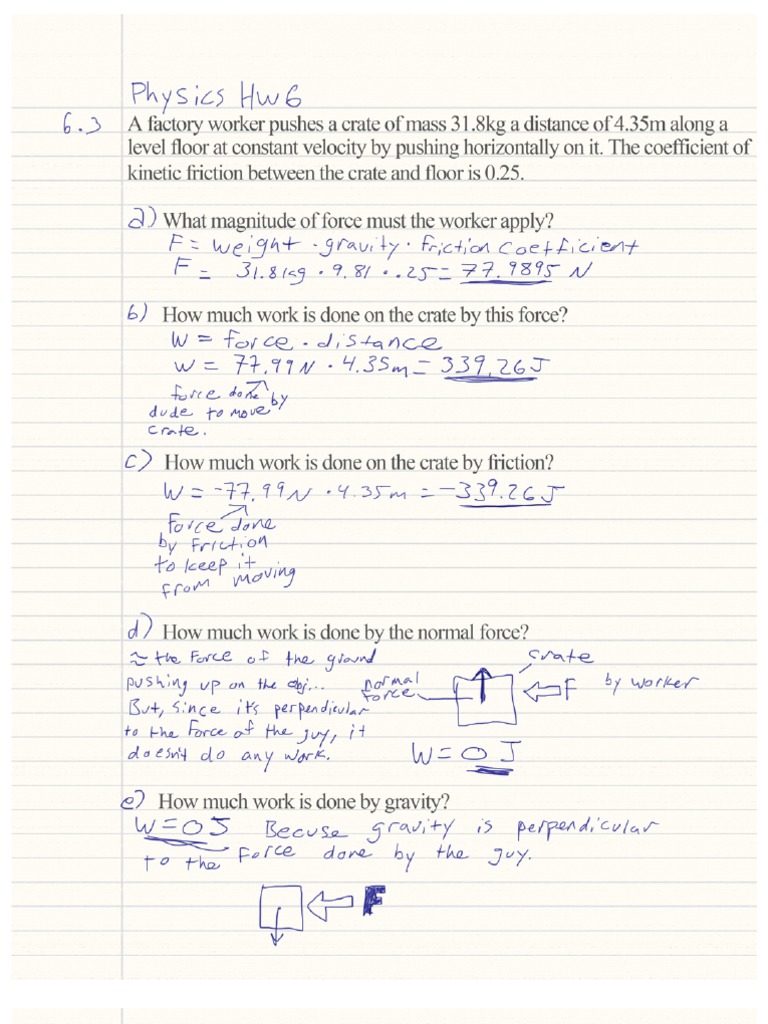 Physics HW6
6.3 A factory worker pushes a crate of mass 31.8kg a distance of 4.35m along a
level floor at constant velocity by pushing horizontally on it. The coefficient of
kinetic friction between the crate and floor is 0.25.
a) What magnitude of force must the worker apply?
F = weight · gravity · friction coefficient
F = 31.81kg · 9.81 · .25 = 77.9895 N
b) How much work is done on the crate by this force?
W = force · distance
W = 77.99N · 4.35m = 339.26J
force done by
dude to move
crate.
c) How much work is done on the crate by friction?
W = -77.99N · 4.35m = -339.26J
Force done
by Friction
to keep it
from moving
d) How much work is done by the normal force?
≈ the Force of the ground
pushing up on the obj...
But, since its perpendicular
to the Force of the guy, it
doesn't do any work.
crate
normal
force
F by worker
W = 0 J
e) How much work is done by gravity?
W = 0J Becuse gravity is perpendicular
to the Force done by the guy.
F